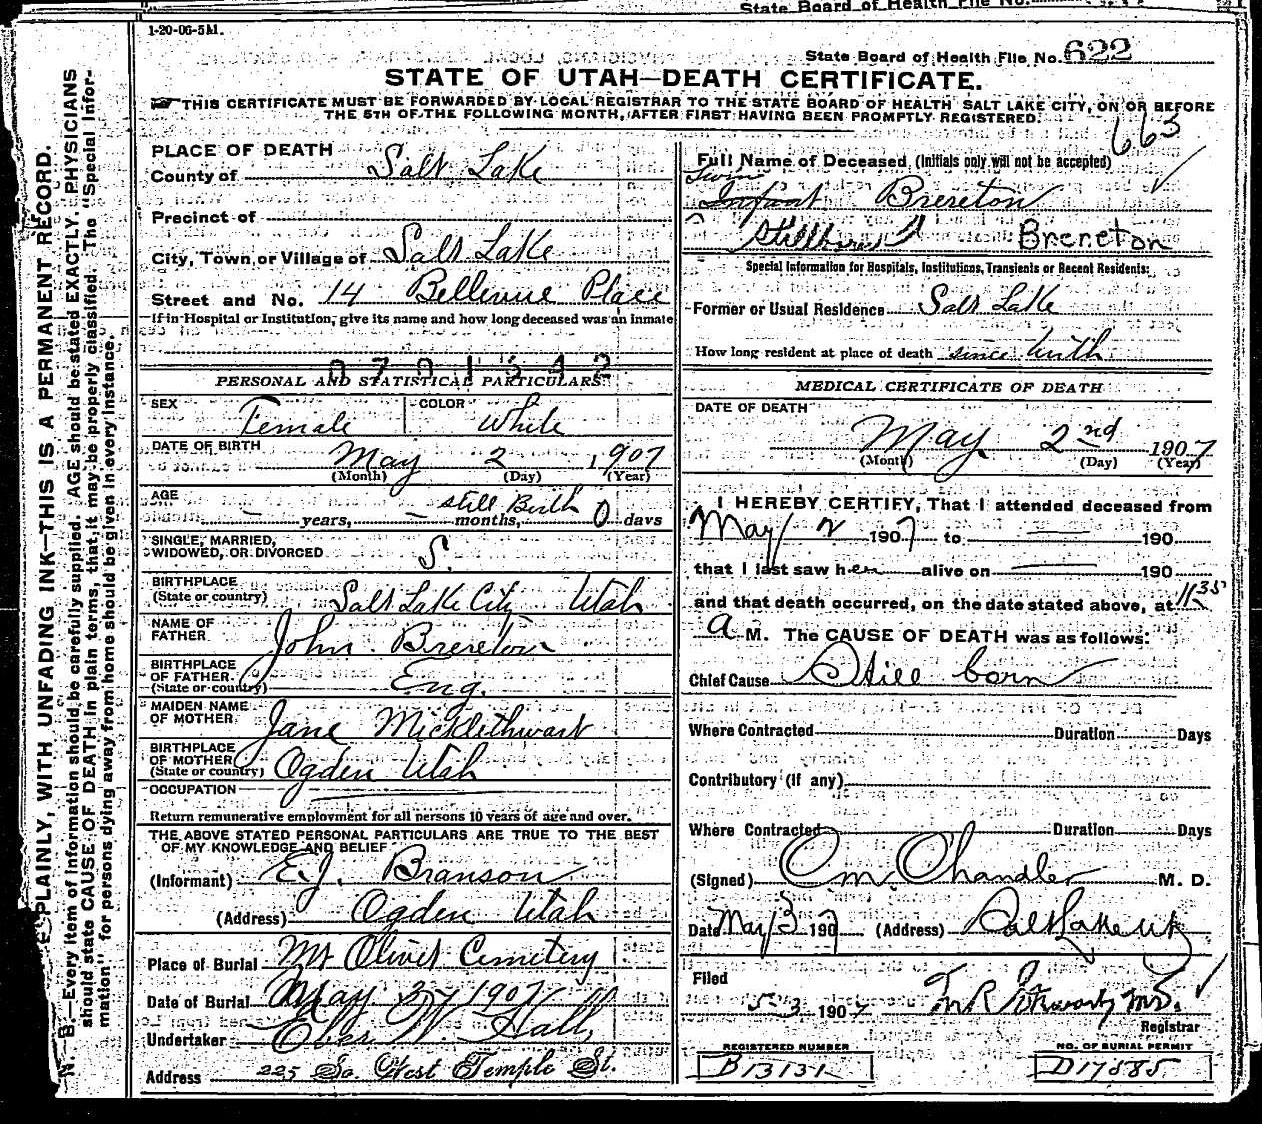 State Board of Health File No.
1-20-06-5M.
State Board of Health File No. 622
STATE OF UTAH—DEATH CERTIFICATE.
THIS CERTIFICATE MUST BE FORWARDED BY LOCAL REGISTRAR TO THE STATE BOARD OF HEALTH SALT LAKE CITY, ON OR BEFORE
THE 5TH OF THE FOLLOWING MONTH, AFTER FIRST HAVING BEEN PROMPTLY REGISTERED.
663
PLACE OF DEATH
County of Salt Lake
Precinct of
City, Town or Village of Salt Lake
Street and No. 14 Bellevue Place
If in Hospital or Institution, give its name and how long deceased was an inmate
0701542
PERSONAL AND STATISTICAL PARTICULARS
SEX Female COLOR White
DATE OF BIRTH May 2 1907
(Month) (Day) (Year)
AGE still Birth
– years, – months, 0 days
SINGLE, MARRIED,
WIDOWED, OR DIVORCED S.
BIRTHPLACE
(State or country) Salt Lake City Utah
NAME OF
FATHER John Brereton
BIRTHPLACE
OF FATHER.
(State or country) Eng.
MAIDEN NAME
OF MOTHER Jane Micklethwart
BIRTHPLACE
OF MOTHER
(State or country) Ogden Utah
OCCUPATION
Return remunerative employment for all persons 10 years of age and over.
THE ABOVE STATED PERSONAL PARTICULARS ARE TRUE TO THE BEST
OF MY KNOWLEDGE AND BELIEF
(Informant) E.J. Branson
(Address) Ogden Utah
Place of Burial Mt Olivet Cemetery
Date of Burial May 3 1907
Undertaker Eber W. Hall,
Address 225 So. West Temple St.
Full Name of Deceased (Initials only will not be accepted)
Twin
Infant Brereton
Stillborn Brereton
Special Information for Hospitals, Institutions, Transients or Recent Residents:
Former or Usual Residence Salt Lake
How long resident at place of death since birth
MEDICAL CERTIFICATE OF DEATH
DATE OF DEATH
May 2nd 1907
(Month) (Day) (Year)
I HEREBY CERTIFY, That I attended deceased from
May 2 1907 to — 190
that I last saw her alive on — 190
and that death occurred, on the date stated above, at 11 35
A M. The CAUSE OF DEATH was as follows:
Chief Cause Still born
Where Contracted Duration Days
Contributory (if any)
Where Contracted Duration Days
(Signed) C M. Chandler M. D.
Date May 3 1907 (Address) Salt Lake Ut
Filed
5 3 1907 M.D.
Registrar
REGISTERED NUMBER
B13131
NO. OF BURIAL PERMIT
D17885
PLAINLY, WITH UNFADING INK—THIS IS A PERMANENT RECORD.
N. B.—Every item of information should be carefully supplied. AGE should be stated EXACTLY. PHYSICIANS
should state CAUSE OF DEATH in plain terms, that it may be properly classified. The "Special Infor-
mation" for persons dying away from home should be given in every instance.